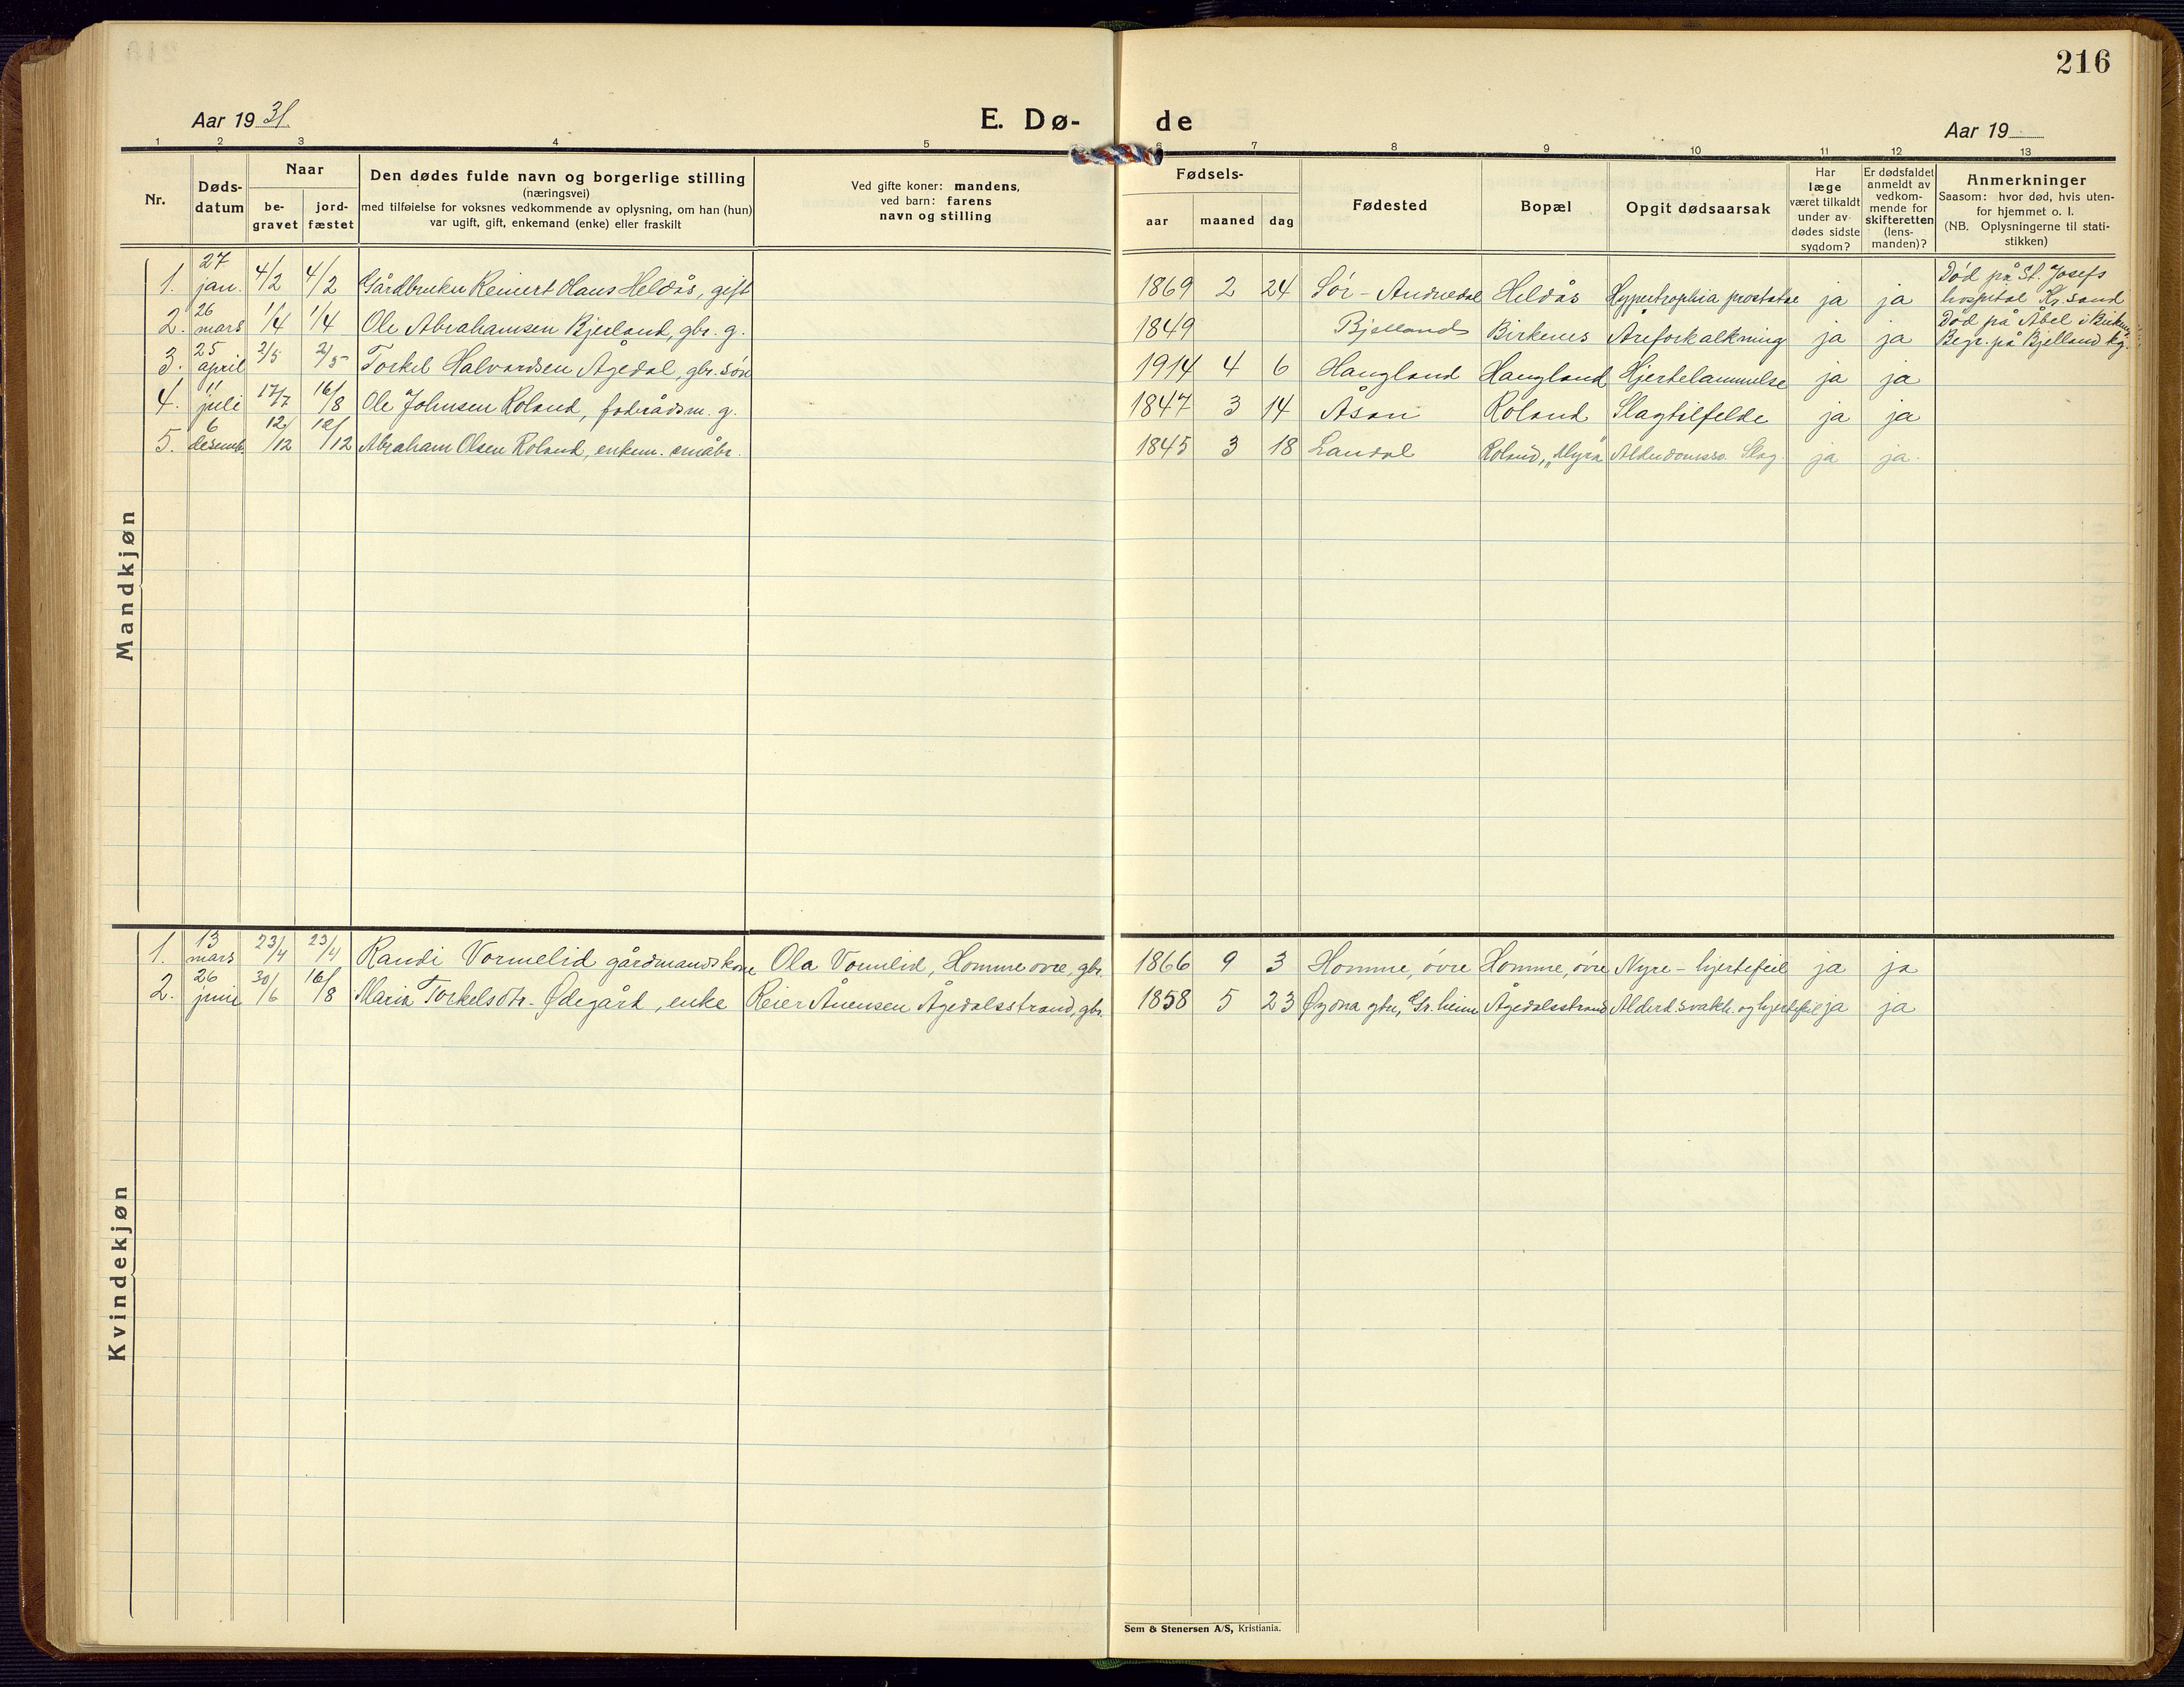 216
Aar 19 31. E. Dø- de Aar 19
1 2 3 4 5 6 7 8 9 10 11 12 13
Nr.
Døds-
datum
Naar
be-
gravet
jord-
fæstet
Den dødes fulde navn og borgerlige stilling
(næringsvei)
med tilføielse for voksnes vedkommende av oplysning, om han (hun)
var ugift, gift, enkemand (enke) eller fraskilt
Ved gifte koner: mandens,
ved barn: farens
navn og stilling
Fødsels-
aar maaned dag
Fødested
Bopæl
Opgit dødsaarsak
Har
læge
været tilkaldt
under av-
dødes sidste
sygdom?
Er dødsfaldet
anmeldt av
vedkom-
mende for
skifteretten
(lens-
manden)?
Anmerkninger
Saasom: hvor død, hvis uten-
for hjemmet o. l.
(NB. Oplysningerne til stati-
stikken)
Mandkjøn
1. 27 jan. 4/2 4/2 Gårdbruker Reinert Olaus Heldås, gift 1869 2 24 Sør-Audnedal Heldås Hypertrophia prostatae ja ja Død på St. Josefs hospital Kr.sand
2. 26 mars 1/4 1/4 Ole Abrahamsen Bjerland, gbr. g. 1849 Bjelland Birkenes Åreforkalkning ja ja Død på Åbel i Birkenes Begr. på Bjelland kg.
3. 25 april 2/5 2/5 Torkel Halvardsen Ågedal, gbr. søn 1914 4 6 Haugland Haugland Hjertelammelse ja ja
4. 11 juli 17/7 16/8 Ole Johnsen Roland, foderådsm. g. 1847 3 14 Åsan Roland Slagtilfelde ja ja
5. 6 desemb. 12/12 12/12 Abraham Olsen Roland, enkem. småbr. 1845 3 18 Laudal Roland, "Myra Alderdomssv. Slag. ja ja.
Kvindekjøn
1. 13 mars 23/4 23/4 Randi Vormelid gårdmandskone Ola Vormlid, Homme øvre, gbr. 1866 9 3 Homme, øvre Homme, øvre Nyre-hjertefeil ja ja
2. 26 juni 30/6 16/8 Maria Torkelsdtr. Ødegård, enke Reier Ånensen Ågedalsstrand, gbr. 1858 5 23 Øydna ytre, Gr.heim Ågedalsstrand Alderd.svakh. og hjertefeil ja ja
Sem & Stenersen A/S, Kristiania.